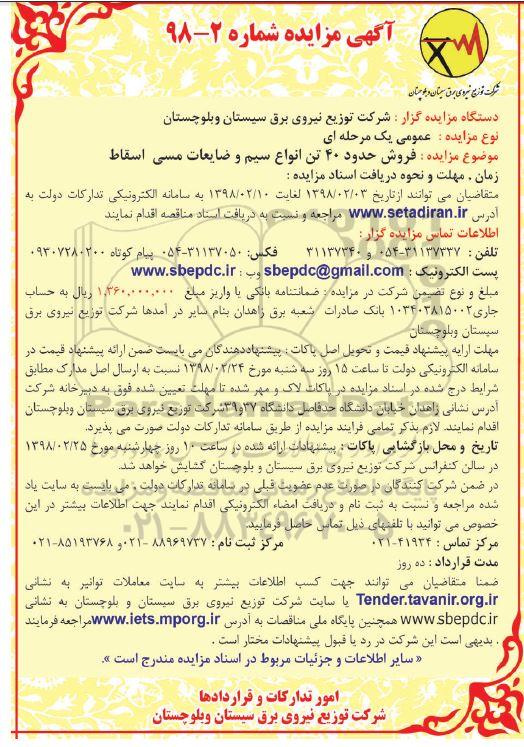 آگهی مزایده شماره ۲-۹۸
شرکت توزیع نیروی برق سیستان و بلوچستان
دستگاه مزایده گزار : شرکت توزیع نیروی برق سیستان وبلوچستان
نوع مزایده : عمومی یک مرحله ای
موضوع مزایده : فروش حدود ۴۰ تن انواع سیم و ضایعات مسی اسقاط
زمان ، مهلت و نحوه دریافت اسناد مزایده :
متقاضیان می توانند ازتاریخ ۱۳۹۸/۰۲/۰۳ لغایت ۱۳۹۸/۰۲/۱۰ به سامانه الکترونیکی تدارکات دولت به
آدرس www.setadiran.ir مراجعه و نسبت به دریافت اسناد مناقصه اقدام نمایند
اطلاعات تماس مزایده گزار :
تلفن : ۳۱۱۳۷۳۳۷-۰۵۴ و ۳۱۱۳۷۳۴۰ فکس: ۳۱۱۳۷۰۵۰-۰۵۴ پیام کوتاه ۰۹۳۰۷۲۸۰۲۰۰
پست الکترونیک : sbepdc@gmail.com وب : www.sbepdc.ir
مبلغ و نوع تضمین شرکت در مزایده : ضمانتنامه بانکی یا واریز مبلغ ۱,۳۶۰,۰۰۰,۰۰۰ ریال به حساب
جاری۱۰۳۴۰۳۸۱۵۰۰۲ بانک صادرات شعبه برق زاهدان بنام سایر در آمدها شرکت توزیع نیروی برق
سیستان وبلوچستان
مهلت ارایه پیشنهاد قیمت و تحویل اصل پاکات : پیشنهاددهندگان می بایست ضمن ارائه پیشنهاد قیمت در
سامانه الکترونیکی دولت تا ساعت ۱۵ روز سه شنبه مورخ ۱۳۹۸/۰۲/۲۴ نسبت به ارسال اصل مدارک مطابق
شرایط درج شده در اسناد مزایده در پاکات لاک و مهر شده تا مهلت تعیین شده فوق به دبیرخانه شرکت
آدرس نشانی زاهدان خیابان دانشگاه حدفاصل دانشگاه ۳۷و۳۹شرکت توزیع نیروی برق سیستان وبلوچستان
اقدام نمایند. لازم بذکر تمامی فرایند مزایده از طریق سامانه تدارکات دولت صورت می پذیرد.
تاریخ و محل بازگشایی پاکات : پیشنهادات ارائه شده در ساعت ۱۰ روز چهارشنبه مورخ ۱۳۹۸/۰۲/۲۵
در سالن کنفرانس شرکت توزیع نیروی برق سیستان و بلوچستان گشایش خواهد شد.
در ضمن شرکت کنندگان در صورت عدم عضویت قبلی در سامانه تدارکات دولت ، می بایست به سایت یاد
شده مراجعه و نسبت به ثبت نام و دریافت امضاء الکترونیکی اقدام نمایند جهت اطلاعات بیشتر در این
خصوص می توانید با تلفنهای ذیل تماس حاصل فرمایید.
مرکز تماس : ۴۱۹۳۴-۰۲۱ مرکز ثبت نام : ۸۸۹۶۹۷۳۷ -۰۲۱ و ۸۵۱۹۳۷۶۸-۰۲۱
مدت قرارداد : ده روز
ضمنا متقاضیان می توانند جهت کسب اطلاعات بیشتر به سایت معاملات توانیر به نشانی
Tender.tavanir.org.ir یا سایت شرکت توزیع نیروی برق سیستان و بلوچستان به نشانی
www.sbepdc.ir همچنین پایگاه ملی مناقصات به آدرس www.iets.mporg.ir مراجعه فرمایند
. بدیهی است این شرکت در رد یا قبول پیشنهادات مختار است .
« سایر اطلاعات و جزئیات مربوط در اسناد مزایده مندرج است ».
امور تدارکات و قراردادها
شرکت توزیع نیروی برق سیستان وبلوچستان